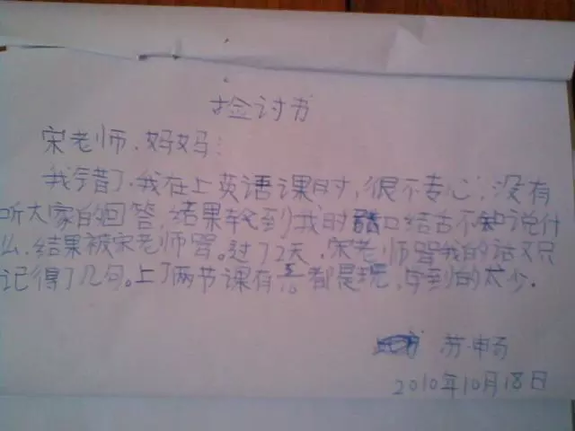 检讨书
宋老师、妈妈：
我错了，我在上英语课时，很不专心，没有
听大家的回答，结果轮到我时口结舌不知说什
么，结果被宋老师骂。过了2天，宋老师骂我的话又只
记得了几句。上了两节课有都是玩，学到的太少。
苏畅
2010年10月18日